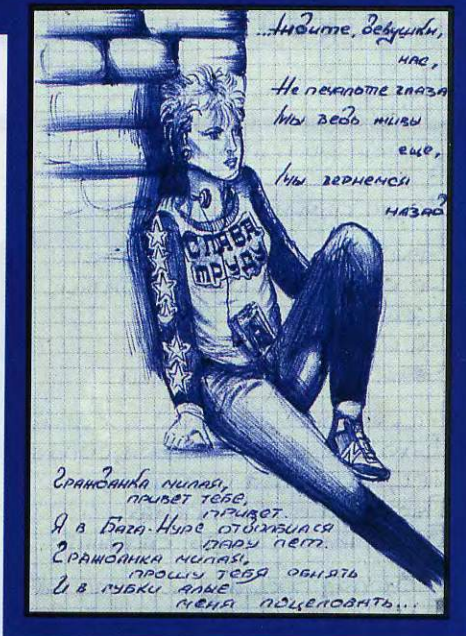 ...Ждите, девушки,
нас,
Не печальте глаза
Мы ведь живы
еще,
Мы вернемся
назад
СЛАВА
ТРУДУ
Гражданка милая,
привет тебе,
привет.
Я в Бага-Нуре
пару лет.
Гражданка милая,
прошу тебя обнять
И в губки алые
меня поцеловать...